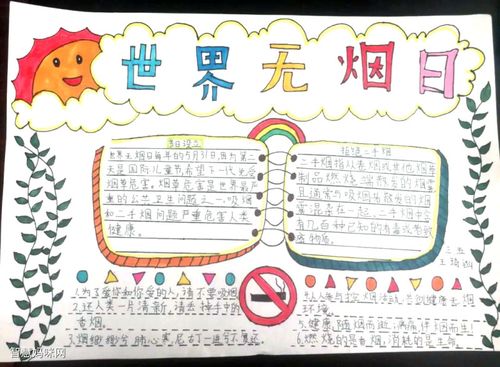 世界无烟日
节日设立
世界无烟日每年的5月31日,因为第二
天是国际儿童节,希望下一代免受
烟草危害。烟草危害是世界最严
重的公共卫生问题之一,吸烟
和二手烟问题严重危害人类
健康。
拒绝二手烟
二手烟指人类烟或其他烟草
制品燃烧端散发的烟雾
且通常与吸烟者散发的烟
雾混杂在一起。二手烟烟中含
有几百种已知的有毒或者致
癌物质。
三五
王琦
1.为了爱你和你爱的人,请不要吸烟
2.还人类一片清新,请丢掉手中的
香烟。
3.烟细微分
4.
环境。
5.健康随烟而逝,病痛伴烟而生!
6.燃烧的是香烟,消耗的是生命。
智慧妈咪网